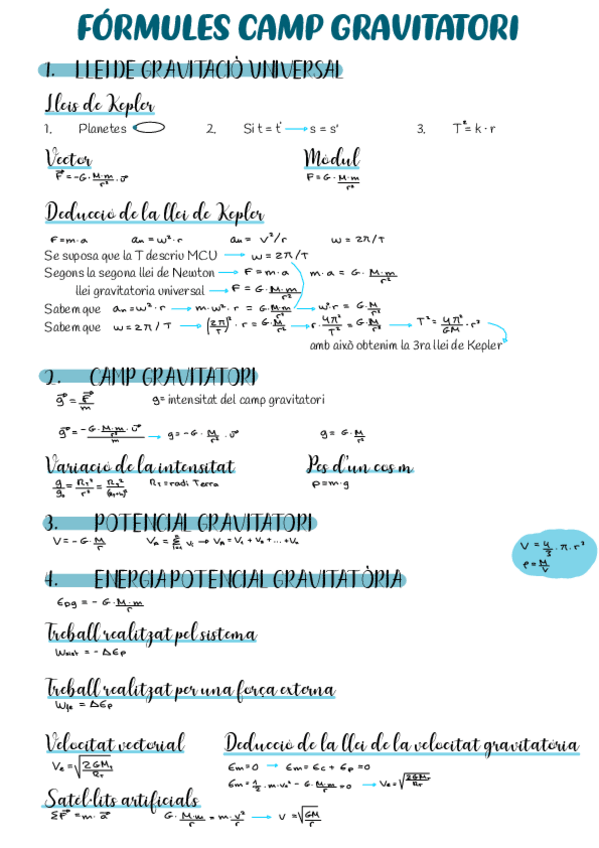 FÓRMULES CAMP GRAVITATORI
1. LLEI DE GRAVITACIÓ UNIVERSAL
Lleis de Kepler
1. Planetes 2. Si t = t' → s = s' 3. T² = k · r
Vector Mòdul
F⃗ = -G · M·m/r² · û F = G · M·m/r²
Deducció de la llei de Kepler
F = m·a an = w²·r an = v²/r w = 2π/T
Se suposa que la T descriu MCU → w = 2π/T
Segons la segona llei de Newton → F = m·a m·a = G · M·m/r²
llei gravitatoria universal → F = G · M·m/r²
Sabem que an = w²·r → m·w²·r = G · M·m/r² → w²·r = G · M/r²
Sabem que w = 2π/T → (2π/T)² · r = G · M/r² → r · 4π²/T² = G · M/r² → T² = 4π²/GM · r³
amb això obtenim la 3ra llei de Kepler
2. CAMP GRAVITATORI
g⃗ = F⃗/m g = intensitat del camp gravitatori
g⃗ = -G · M·m/r² · û/m → g = -G · M/r² · û g = G · M/r²
Variació de la intensitat Pes d'un cos m
g/g₀ = RT²/r² = RT²/(RT+h)² RT = radi Terra p = m·g
3. POTENCIAL GRAVITATORI
V = -G · M/r
4. ENERGIA POTENCIAL GRAVITATÒRIA
V = 4/3 · π · r³
ρ = M/V
Epg = -G · M·m/r
Treball realitzat pel sistema
= -ΔEp
Treball realitzat per una força externa
= ΔEp
Velocitat vectorial Deducció de la llei de la velocitat gravitatòria
Ve = √2GMT/RT Em = 0 → Em = Ec + Ep = 0
Em = 1/2 · m · ve² - G · M·m/r = 0 → Ve = √2GMT/RT
Satèl·lits artificials
ΣF⃗ = m · a⃗ G · M·m/r² = m · v²/r → v = √GM/r